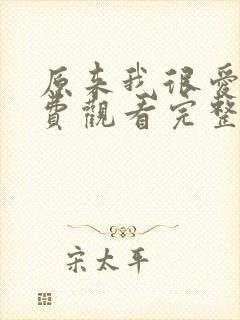 原来我很爱
費觀看完整
宋太平